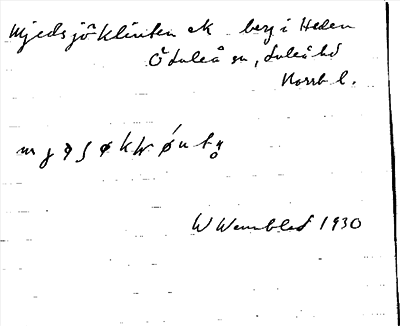 Mjedsjöklinten ek berg i Heden
Ö Luleå sn, Luleå hd
Norrb l.
W Wennblad 1930